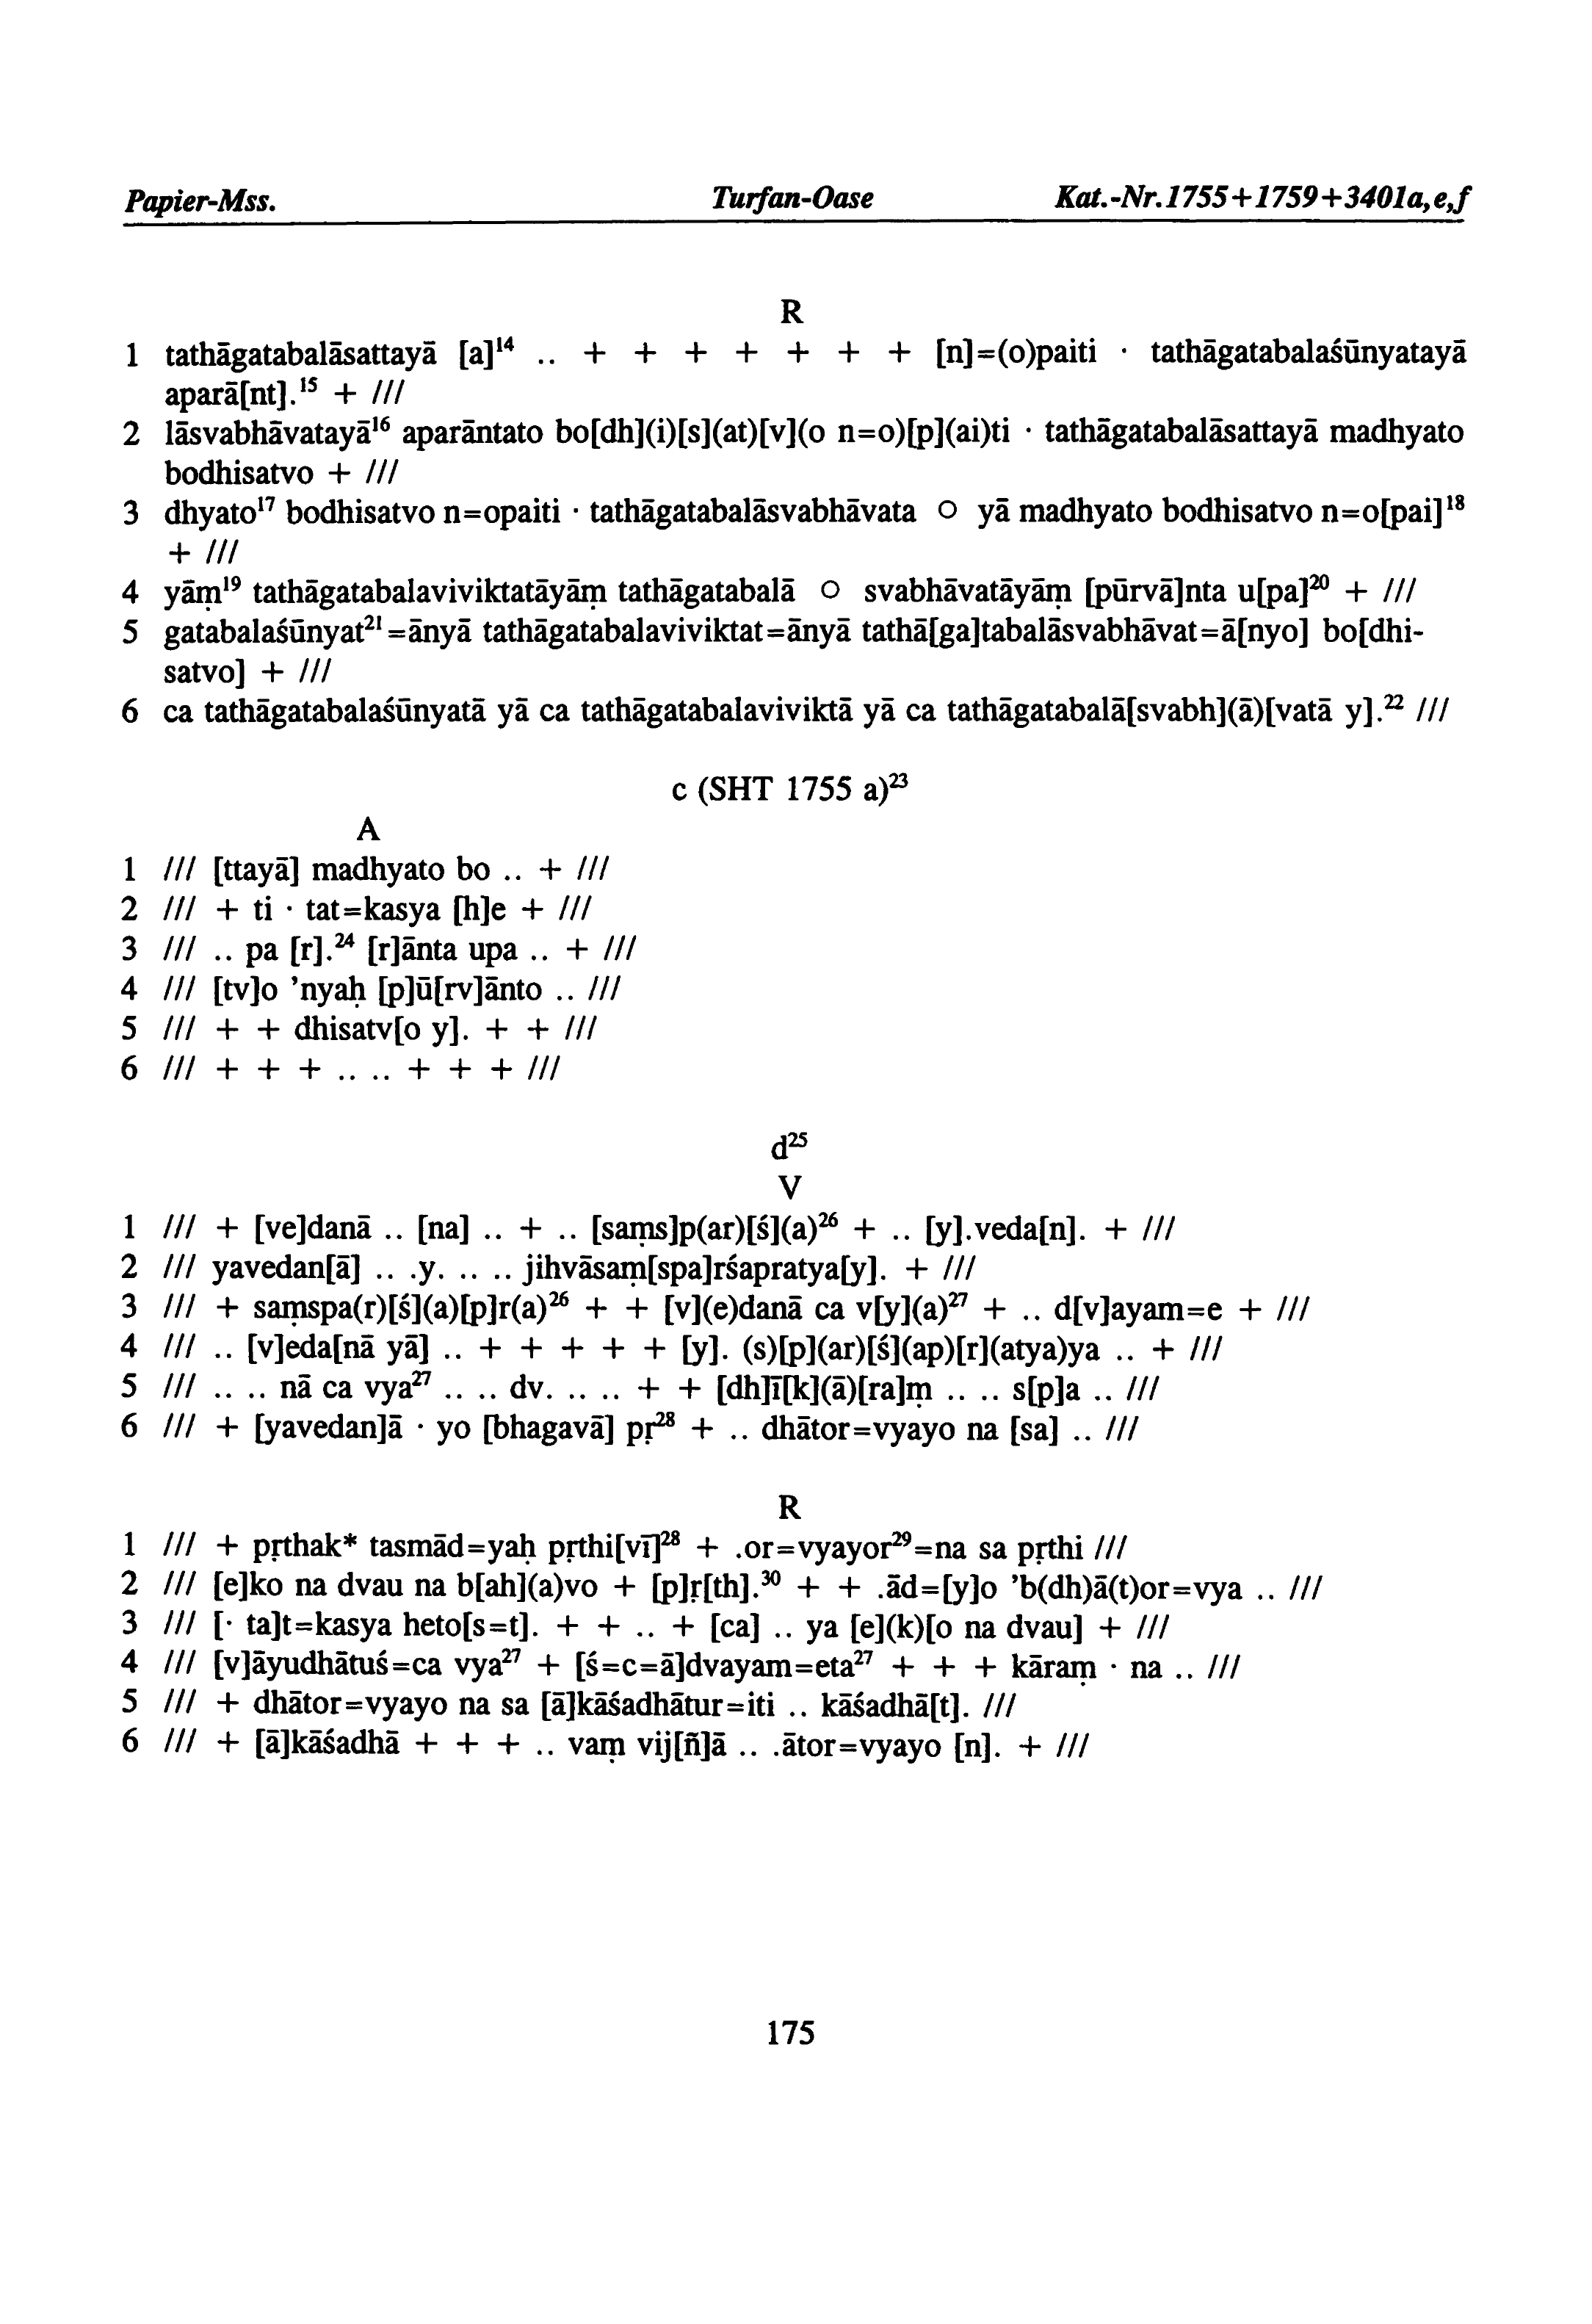 Papier-Mss. Turfan-Oase Kat.-Nr.1755+1759+3401a,e,f
R
1 tathāgatabalāsattayā [a]¹⁴ .. + + + + + + + [n]=(o)paiti · tathāgatabalaśūnyatayā
aparā[nt].¹⁵ + ///
2 lāsvabhāvatayā¹⁶ aparāntato bo[dh](i)[s](at)[v](o n=o)[p](ai)ti · tathāgatabalāsattayā madhyato
bodhisatvo + ///
3 dhyato¹⁷ bodhisatvo n=opaiti · tathāgatabalāsvabhāvata ○ yā madhyato bodhisatvo n=o[pai]¹⁸
+ ///
4 yāṃ¹⁹ tathāgatabalaviviktatāyāṃ tathāgatabalā ○ svabhāvatāyāṃ [pūrvā]nta u[pa]²⁰ + ///
5 gatabalaśūnyat²¹=ānyā tathāgatabalaviviktat=ānyā tathā[ga]tabalāsvabhāvat=ā[nyo] bo[dhi-
satvo] + ///
6 ca tathāgatabalaśūnyatā yā ca tathāgatabalaviviktā yā ca tathāgatabalā[svabh](ā)[vatā y].²² ///
c (SHT 1755 a)²³
A
1 /// [ttayā] madhyato bo .. + ///
2 /// + ti · tat=kasya [h]e + ///
3 /// .. pa [r].²⁴ [r]ānta upa .. + ///
4 /// [tv]o ’nyaḥ [p]ū[rv]ānto .. ///
5 /// + + dhisatv[o y]. + + ///
6 /// + + + .. .. + + + ///
d²⁵
V
1 /// + [ve]danā .. [na] .. + .. [saṃs]p(ar)[ś](a)²⁶ + .. [y].veda[n]. + ///
2 /// yavedan[ā] .. .y. .. .. jihvāsaṃ[spa]rśapratya[y]. + ///
3 /// + saṃspa(r)[ś](a)[p]r(a)²⁶ + + [v](e)danā ca v[y](a)²⁷ + .. d[v]ayam=e + ///
4 /// .. [v]eda[nā yā] .. + + + + + [y]. (s)[p](ar)[ś](ap)[r](atya)ya .. + ///
5 /// .. .. nā ca vya²⁷ .. .. dv. .. .. + + [dh]ī[k](ā)[ra]ṃ .. .. s[p]a .. ///
6 /// + [yavedan]ā · yo [bhagavā] pṛ²⁸ + .. dhātor=vyayo na [sa] .. ///
R
1 /// + pṛthak* tasmād=yaḥ pṛthi[vī]²⁸ + .or=vyayor²⁹=na sa pṛthi ///
2 /// [e]ko na dvau na b[ah](a)vo + [p]ṛ[th].³⁰ + + .ād=[y]o ’b(dh)ā(t)or=vya .. ///
3 /// [· ta]t=kasya heto[s=t]. + + .. + [ca] .. ya [e](k)[o na dvau] + ///
4 /// [v]āyudhātuś=ca vya²⁷ + [ś=c=ā]dvayam=eta²⁷ + + + kāraṃ · na .. ///
5 /// + dhātor=vyayo na sa [ā]kāśadhātur=iti .. kāśadhā[t]. ///
6 /// + [ā]kāśadhā + + + .. vaṃ vij[ñ]ā .. .ātor=vyayo [n]. + ///
175